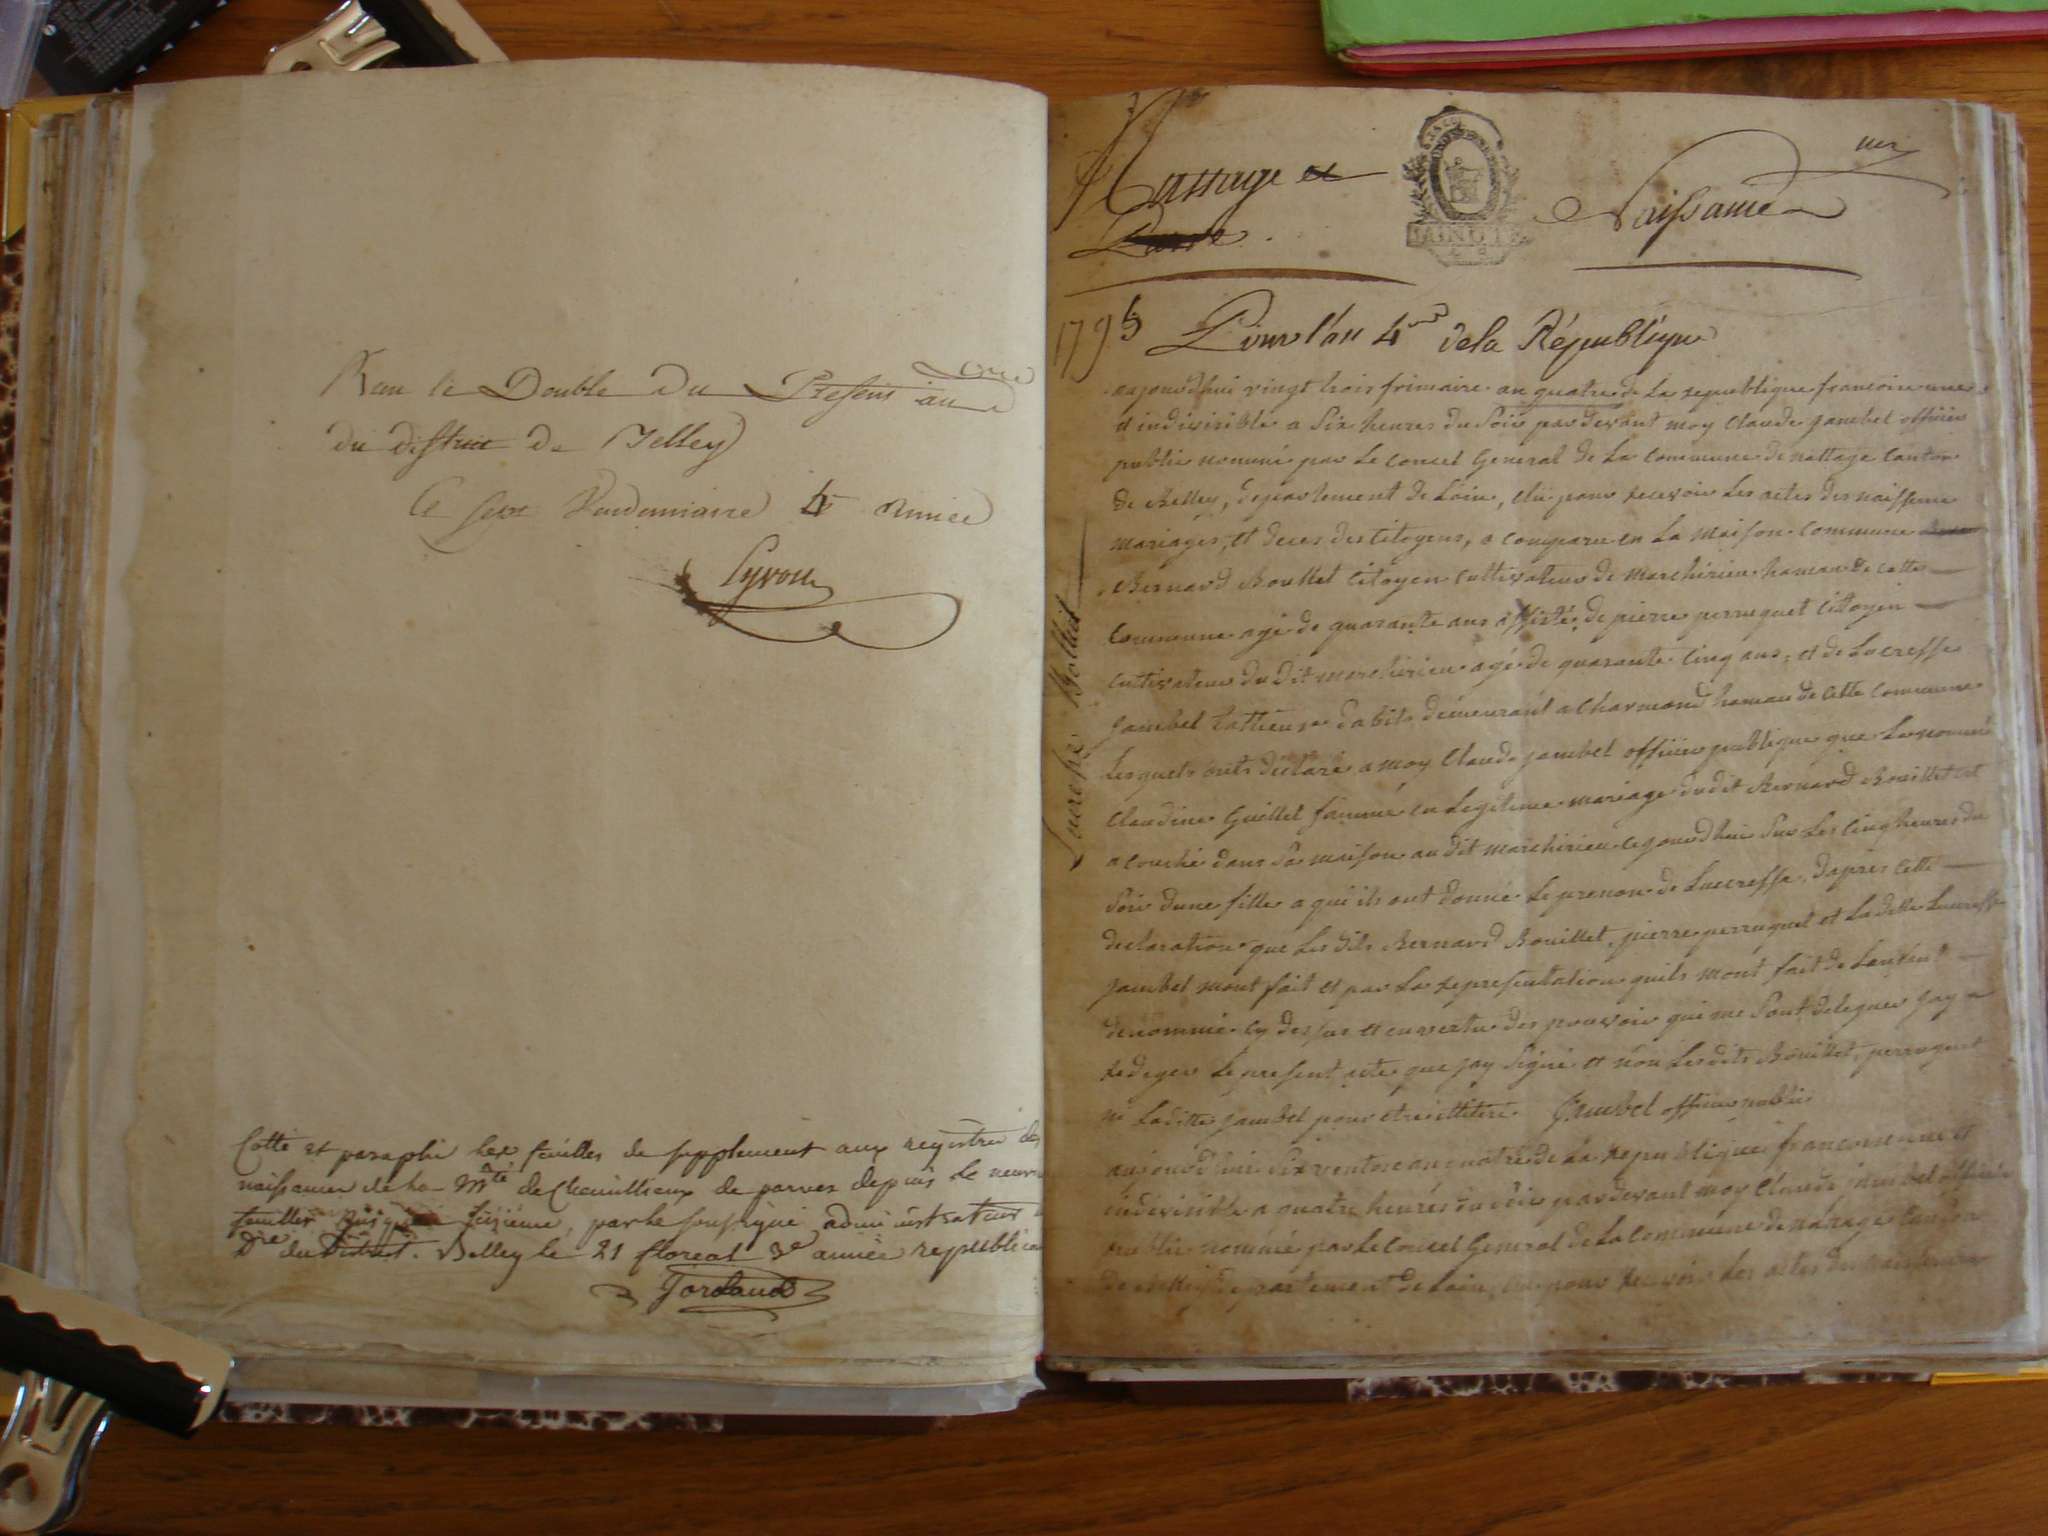 Reçu le Double du Present
au
du district de Belley
Ce sept Vendemiaire 4e année
Pyron
Cotté et paraphé les feuilles de supplement aux registre des
naissances de la Mté de Chemillieux de parves depuis le neuv
feuillet jusque sizième, par le soussigné administrateur
Dre du District. Belley le 21 floreal 3e année republicai
Nattage et
Parve
MINUTE
Naissance
1795 Pour l'an 4me de la République
aujourdhui vingt trois frimaire an quatre de la republique francoise une
et indivisible a six heures du soir pardevant moy Claude Jambel officier
public nommé par le conseil General de la Commune de nattage Canton
de Belley, departement de Lain, élu pour recevoir les actes des naissence
mariages, et deces des Citoyens, a comparu en la maison commune
Bernard Bouillet Citoyen cultivateur de Marchirieu hamau de cette
Commune agé de quarante ans assisté de pierre perruquet Citoyen
cultivateur du dit marchirieu agé de quarante cinq ans, et de Lucresse
Jambel tallieuse dabits demeurant a Charmond hamau de cette Commune
Lesquels onts déclaré a moy Claude jambel officier publique que la nommé
Claudine Guillet famme en Legitime mariage dudit Bernard Bouillet est
acouché dans sa maison au dit marchirieu cejourdhui sur les cinq heures du
soir dune fille a qui ils ont donné le prenom de Lucresse. dapres cette
declaration que Les dits Bernard Bouillet, pierre perruquet et La ditte Lucresse
Jambel mont fait et par La representation quils mont fait de Lanfent
denommé cy dessus et en vertu des pouvoir qui me sont delegues jay
redeger Le present acte que jay signé et non Les dits Bouillet, perruquet
ni Laditte jambel pour etre illiteré Jambel officier public
aujourdhui six ventose an quatre de La Republique francoise une et
indivisible a quatre heures du soir pardevant moy Claude jambel officier
public nommé par Le Conseil General de La Commune de natage Canton
de Belley departement de Lain, élu pour recevoir les actes des naissence
Lucresse Bollliet